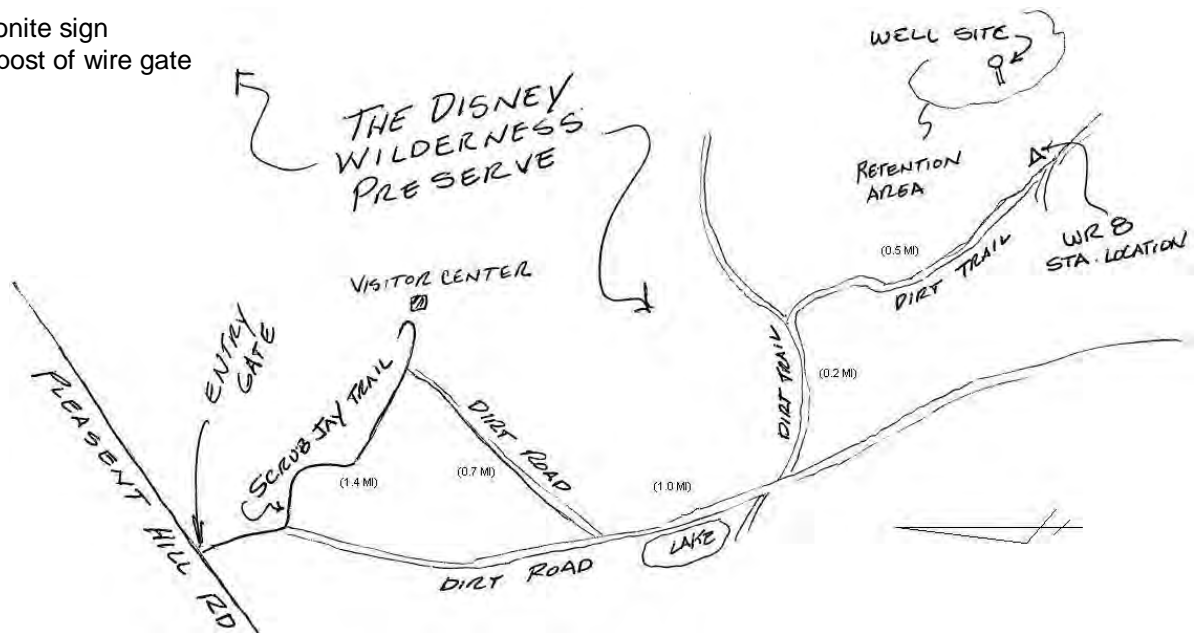 onite sign
post of wire gate
WELL SITE
THE DISNEY
WILDERNESS
PRESERVE
RETENTION
AREA
WR 8
STA. LOCATION
(0.5 MI)
DIRT TRAIL
VISITOR CENTER
ENTRY
GATE
PLEASENT HILL RD
SCRUB JAY TRAIL
(1.4 MI)
DIRT ROAD
(0.7 MI)
DIRT TRAIL
(0.2 MI)
(1.0 MI)
LAKE
DIRT ROAD